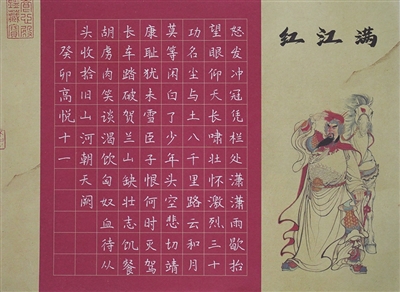 满江红
怒发冲冠凭栏处潇潇雨歇抬
望眼仰天长啸壮怀激烈三十
功名尘与土八千里路云和月
莫等闲白了少年头空悲切靖
康耻犹未雪臣子恨何时灭驾
长车踏破贺兰山缺壮志饥餐
胡虏肉笑谈渴饮匈奴血待从
头收拾旧山河朝天阙
癸卯高悦十一